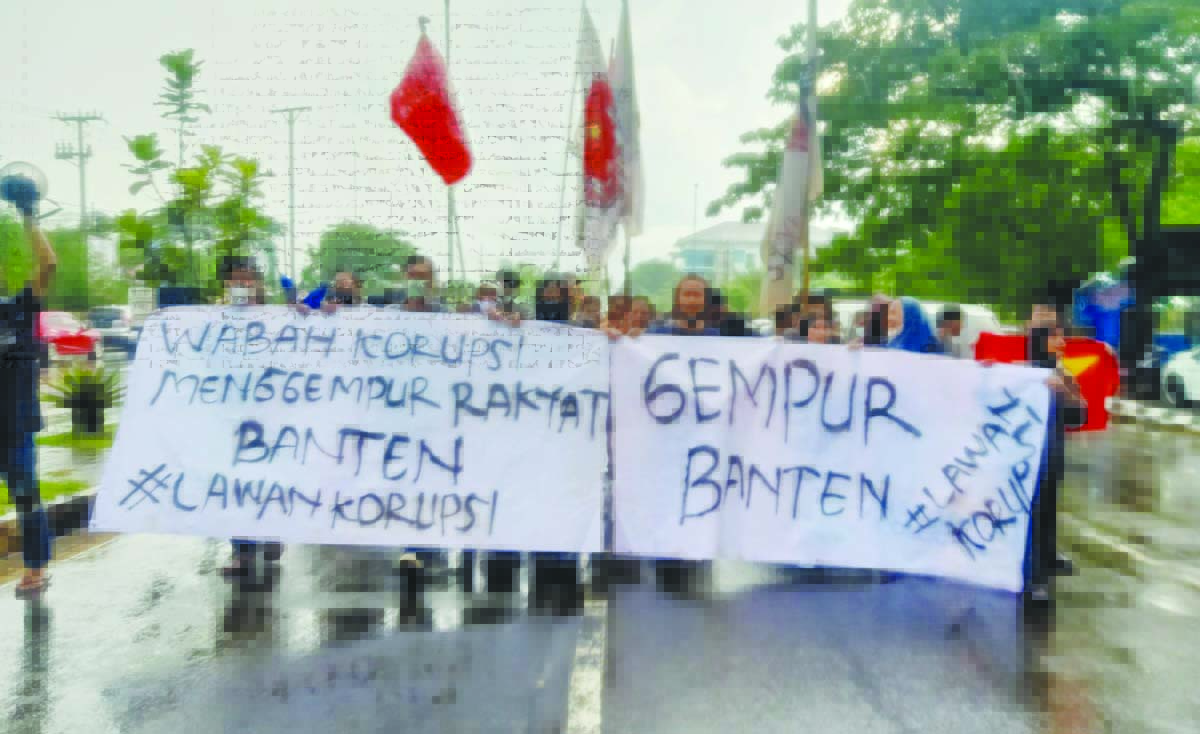 WABAH KORUPSI
MENGGEMPUR RAKYAT
BANTEN
#LAWANKORUPSI
GEMPUR
BANTEN
#LAWAN
KORUPSI